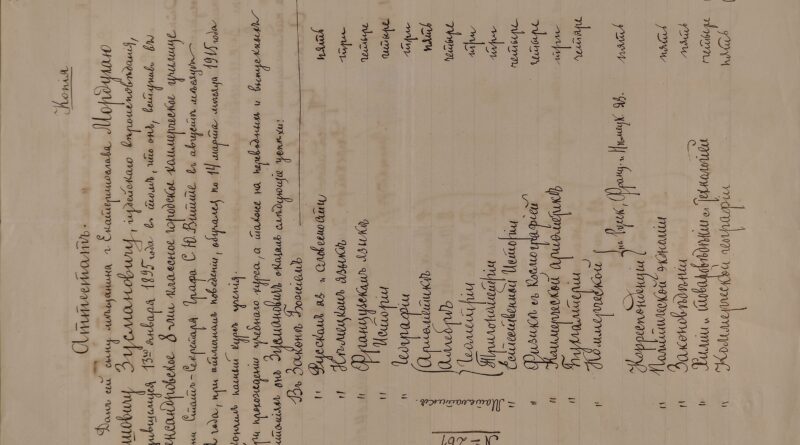 Копія
Аттестатъ.
Данъ сей сыну мѣщанина г. Екатеринослава Мордухаю
мовичу Зусмановичу, іудейскаго вѣроисповѣданія,
дившемуся 13го января 1895 года въ томъ, что онъ, вступивъ въ
ександровское 8-ми классное городское коммерческое училище
ни Статсъ-Секретаря Графа С. Ю. Витте въ августѣ мѣсяцѣ
года, при отличномъ поведеніи, обучался по 14 марта мѣсяца 1915 года
кончилъ полный курсъ ученія.
ри прохожденіи учебнаго курса, а также на переводныхъ и выпускныхъ
онъ Зусмановичъ оказалъ слѣдующіе успѣхи:
Въ Законѣ Божіемъ
" Русскомъ яз. и словесности пять
" Нѣмецкомъ языкѣ три
" Французскомъ языкѣ четыре
" Исторіи четыре
" Географіи три
Математикѣ
Ариѳметикѣ пять
Алгебрѣ четыре
Геометріи три
Тригонометріи три
" Естественной Исторіи четыре
" Физикѣ съ Космографіей четыре
" Коммерческой Ариѳметикѣ три
" Бухгалтеріи четыре
" Коммерческой
Корреспонденціи на Русск., Франц. и Нѣмецк. яз. пять
" Политической экономіи пять
" Законовѣдѣнію пять
" Химіи и товаровѣдѣнію съ Технологіей четыре
" Коммерческой географіи пять